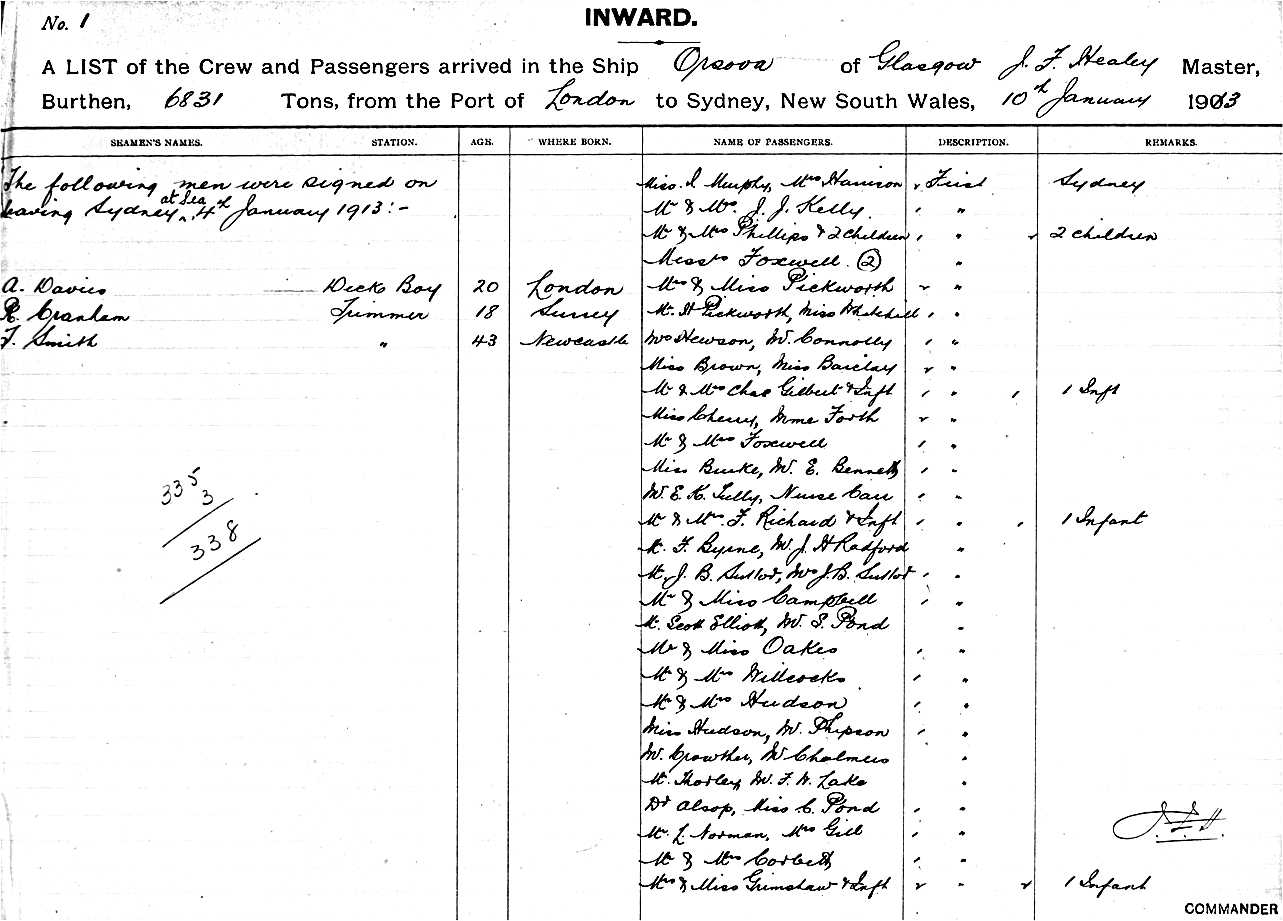 No. 1
INWARD.
A LIST of the Crew and Passengers arrived in the Ship Orsova of Glasgow J. F. Healey Master,
Burthen, 6831 Tons, from the Port of London to Sydney, New South Wales, 10th January 1913
SEAMEN'S NAMES. STATION. AGE. WHERE BORN. NAME OF PASSENGERS. DESCRIPTION. REMARKS.
The following men were signed on Miss. I. Murphy, Mrs Harrison First Sydney
leaving Sydney at Sea 4th January 1913:- Mr & Mrs. J. J. Kelly "
Mr & Mrs Phillips & 2 Children " 2 Children
Misses Foxwell (2) "
A. Davies Deck Boy 20 London Mrs & Miss Pickworth "
R. Cranham Trimmer 18 Surrey Mr. H Pickworth, Miss Whitehill "
F. Smith " 43 Newcastle Mrs Hewson, Mr. Connolly "
Miss Brown, Miss Barclay "
Mr & Mrs Chas Gilbert & Inft " 1 Inft
Miss Cherry, Mme Forth "
Mr & Mrs Foxwell "
Miss Burke, Mr. E. Bennett "
Mr. E. K. Tully, Nurse Carr "
Mr & Mrs. F. Richard & Inft " 1 Infant
Mr. F. Byrne, Mr. J. H Radford "
Mr. J. B. Suttor, Mrs J. B. Suttor "
Mr & Miss Campbell "
Mr. Scott Elliott, Mr. S. Pond "
Mr & Miss Oakes "
Mr & Mrs Willcocks "
Mr & Mrs Hudson "
Miss Hudson, Mr. Phipson "
Mr. Crowther, Mr Chalmers "
Mr. Thorley, Mr. F. W. Lake "
Dr Alsop, Miss C. Pond "
Mr. L. Norman, Mrs Gill "
Mr & Mrs Corbett "
Mrs & Miss Grimshaw & Inft " 1 Infant
335
3
338
COMMANDER